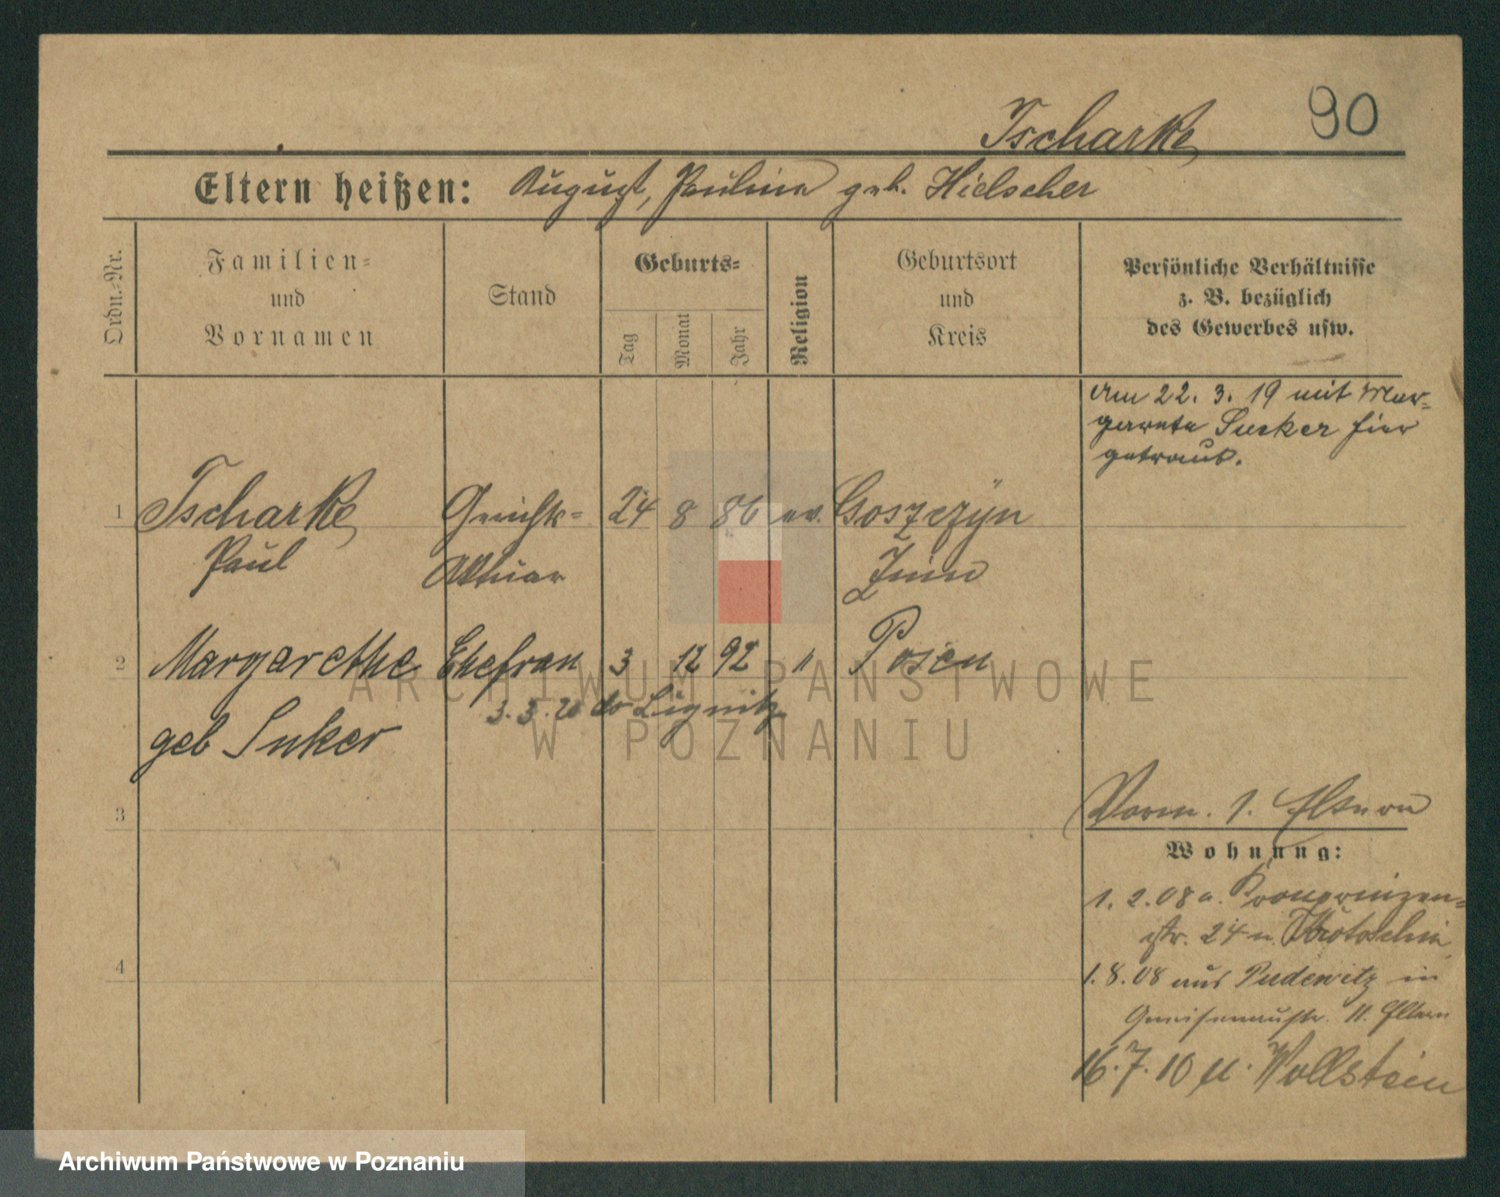 90
Tscharke
Eltern heißen: August, Pauline geb. Hielscher
Ordn.-Nr.
Familien- und Vornamen
Stand
Geburts-
Tag
Monat
Jahr
Religion
Geburtsort und Kreis
Persönliche Verhältnisse
z. B. bezüglich
des Gewerbes usw.
Am 22. 3. 19 mit Mar-
garete Sucker hier
getraut.
1 Tscharke Gerichts- 24 8 86 ev. Goszczyn
Paul Aktuar Znin
2 Margarethe Ehefrau 3 12 92 " Posen
3. 3. 20 Liegnitz
geb Suker
3
Vorm. 1. Eltern
Wohnung:
1. 2. 08 a. Kronprinzen-
str. 24 n. Krotoschin
4
1. 8. 08 aus Pudewitz in
Gneisenaustr. 11. Eltern
16. 7. 10 n. Wollstein
ARCHIWUM PAŃSTWOWE
W POZNANIU
Archiwum Państwowe w Poznaniu